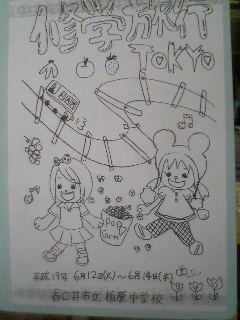 修学旅行
TOKYO
POP
CORN
平成19年 6月12日(火)～6月14日(木)
春日井市立 柏原中学校